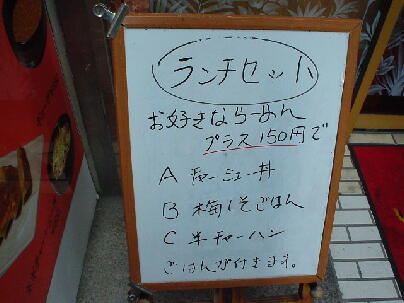 ランチセット
お好きならーめん
プラス150円で
A チャーシュー丼
B 梅しそごはん
C 半チャーハン
ごはんが付きます。